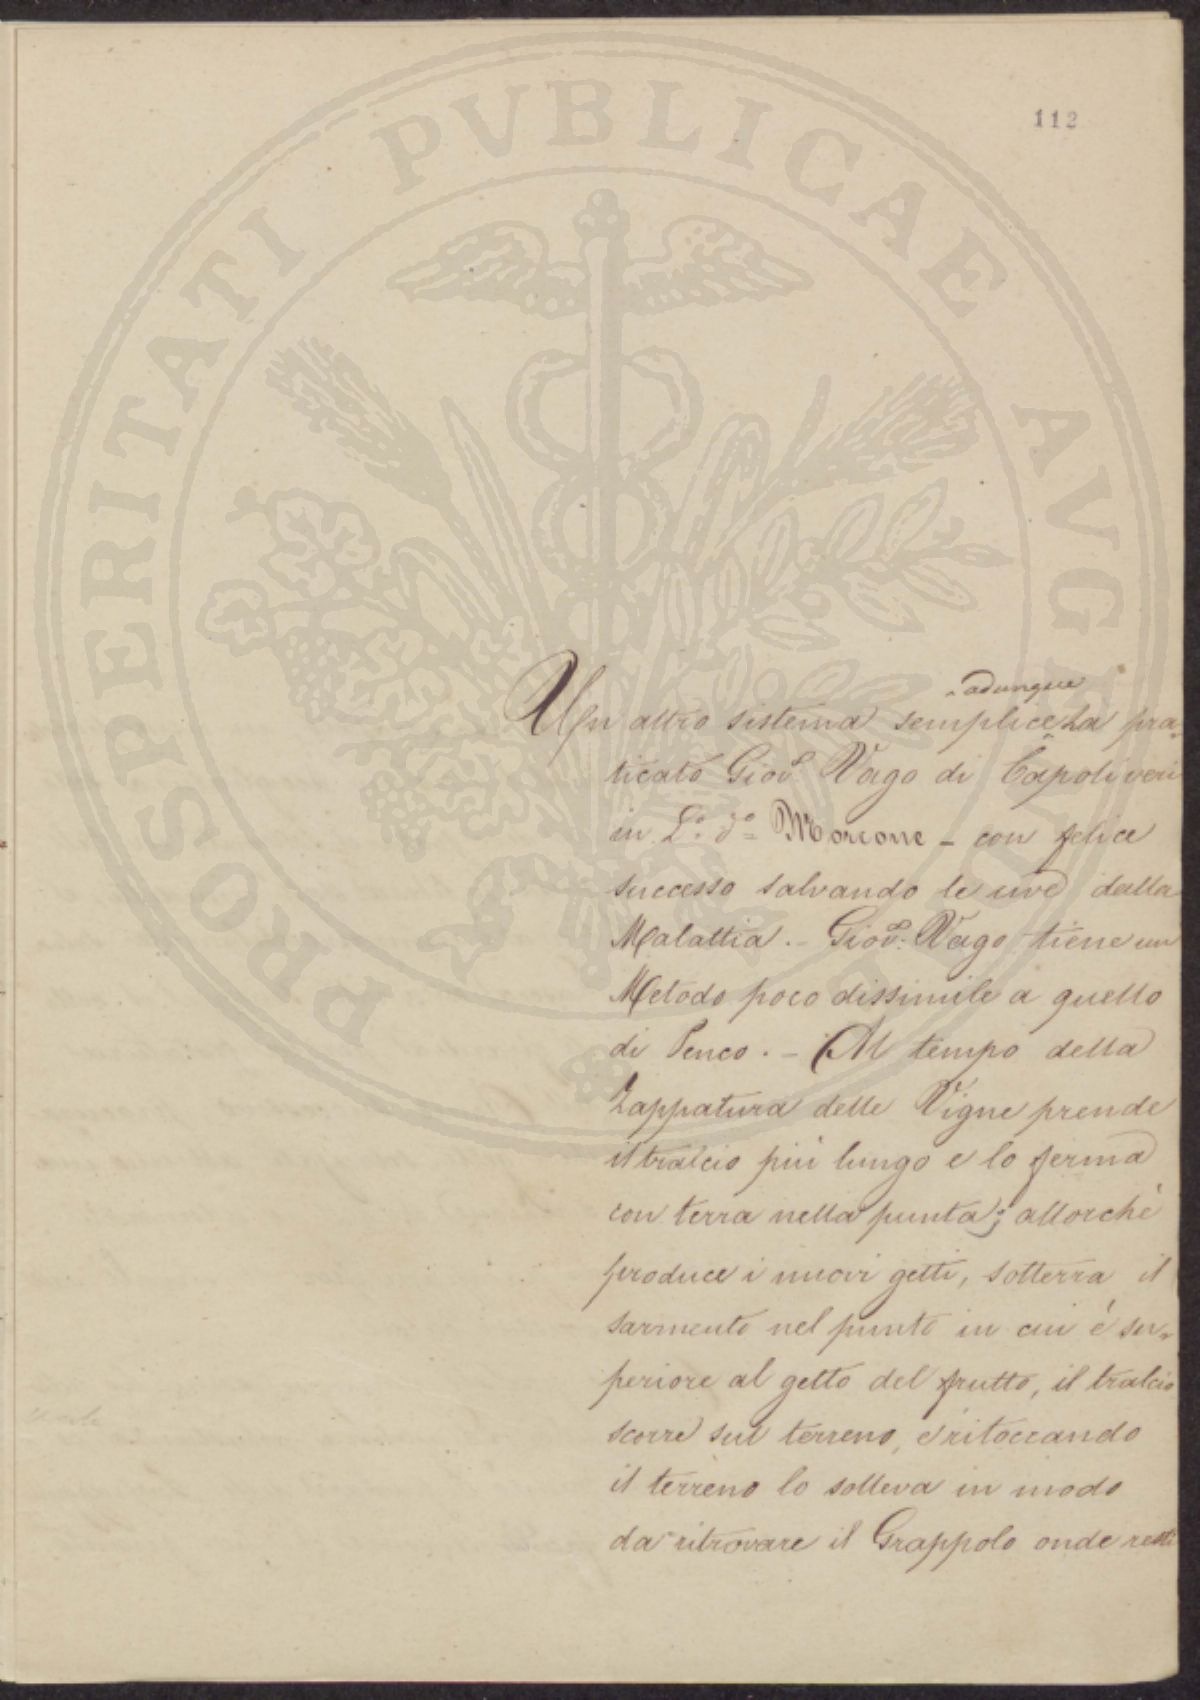 112
adunque
Un altro sistema semplice ha pra-
ticato Giov: Vago di Capoliveri
in L.o d.o Morcone - con felice
successo salvando le uve dalla
Malattia. - Giov: Vago tiene un
Metodo poco dissimile a quello
di Penco. - Al tempo della
Zappatura delle Vigne prende
il tralcio più lungo e lo ferma
con terra nella punta; allorchè
produce i nuovi getti, sotterra il
sarmento nel punto in cui è su-
periore al getto del frutto, il tralcio
scorre sul terreno, e ritoccando
il terreno lo solleva in modo
da ritrovare il Grappolo onde resti
PROSPERITATI PVBLICAE AVGENDAE